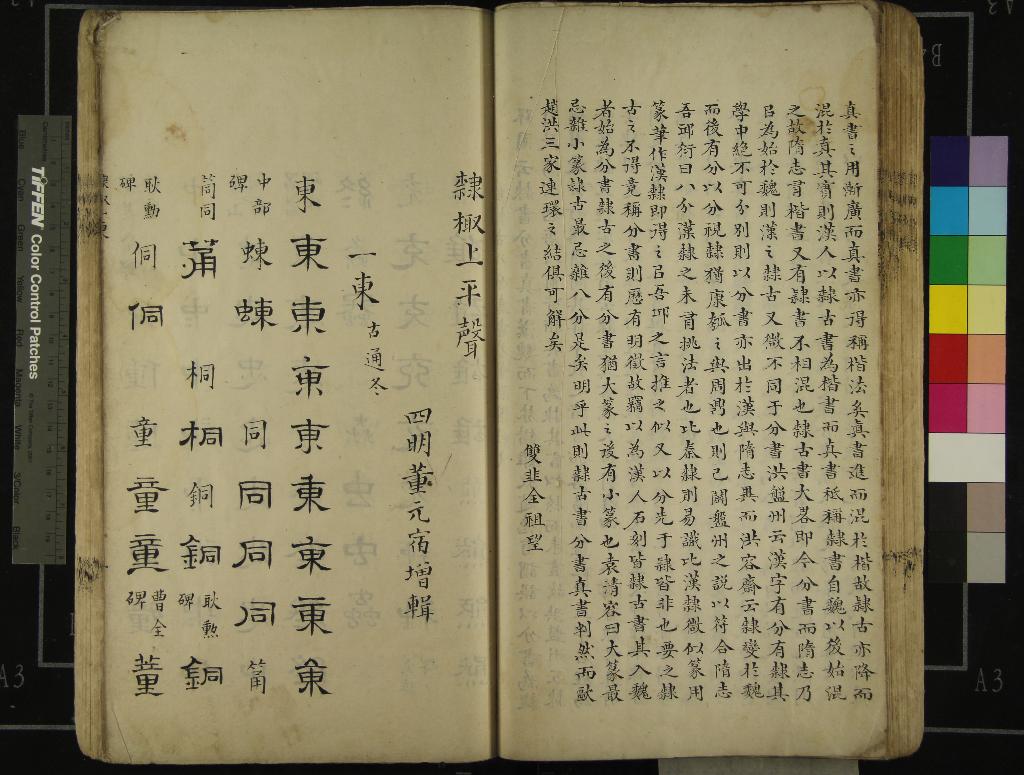 真書之用漸廣而真書亦得稱楷法矣真書進而混扵楷故隷古亦降而
混扵真其實則漢人以隷古書為楷書而真書祗稱隷書自魏以後始混
之故隋志言楷書又有隷書不相混也隷古書大畧即今分書而隋志乃
㠯為始扵魏則漢之隷古又微不同于分書洪盤州云漢字有分有隷其
學中絶不可分别則以分書亦出扵漢與隋志異而洪容齋云隷變扵魏
而後有分以分視隷猶康瓠之與周鼎也則已闢盤州之説以符合隋志
吾邱衍曰八分漢隷之未有挑法者也比秦隷則易識比漢隷微似篆用
篆筆作漢隷即得之㠯吾邱之言推之似又以分先于隷皆非也要之隷
古之不得竟稱分書則應有明徴故竊以為漢人石刻皆隷古書其入魏
者始為分書隷古之後有分書猶大篆之後有小篆也袁清容曰大篆最
忌雜小篆隷古最忌雜八分是矣明乎此則隷古書分書真書判然而歐
趙洪三家連環之結俱可解矣
雙韭全祖望
隸椒上平聲
四明董元宿增輯
一東 古通冬
東 東 東 東 東 東 東 東 東
中部碑 蝀 蝀 同 同 同 同 筩
筒同 筩 桐 桐 銅 銅 耿勳碑 銅
耿勳碑 侗 侗 童 童 童 曹全碑 董
TIFFEN Color Control Patches
Blue Cyan Green Yellow Red Magenta White 3/Color Black
A3
A3
B4